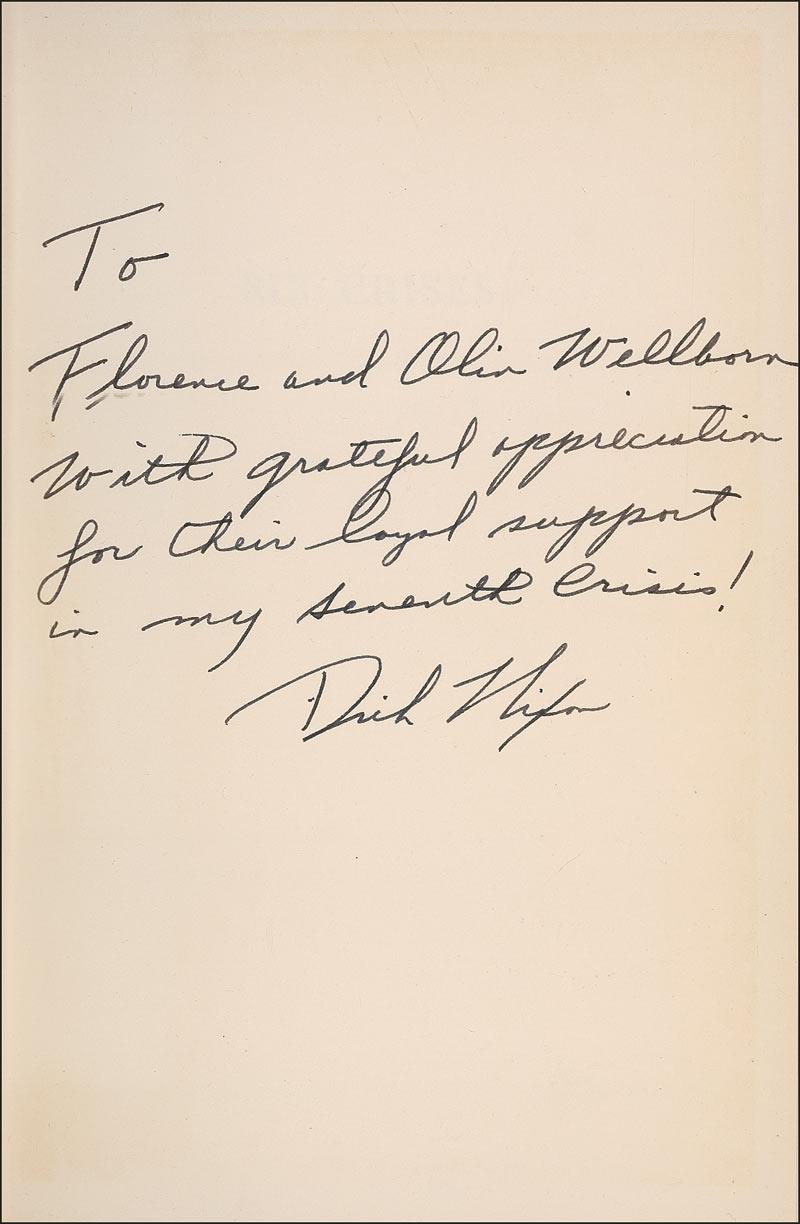 To
Florence and Olin Wellborn
With grateful appreciation
for their loyal support
in my seventh Crisis!
Dick Nixon
SIX CRISES